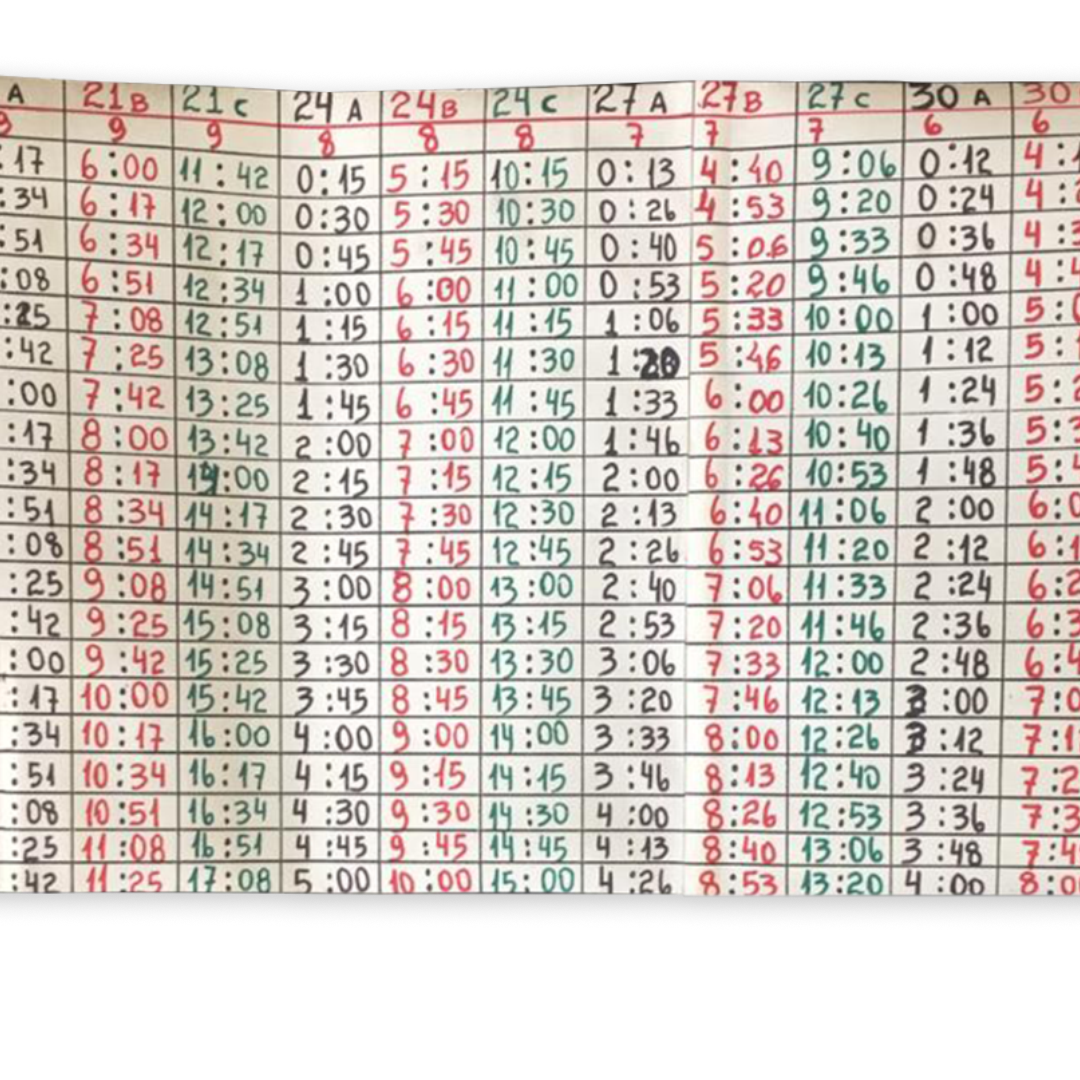 A 21B 21C 24 A 24B 24C 27 A 27B 27C 30 A 30
9 9 8 8 8 7 7 7 6 6
:17 6:00 11:42 0:15 5:15 10:15 0:13 4:40 9:06 0:12 4:
:34 6:17 12:00 0:30 5:30 10:30 0:26 4:53 9:20 0:24 4:
:51 6:34 12:17 0:45 5:45 10:45 0:40 5:06 9:33 0:36 4:
:08 6:51 12:34 1:00 6:00 11:00 0:53 5:20 9:46 0:48 4:
:25 7:08 12:51 1:15 6:15 11:15 1:06 5:33 10:00 1:00 5:
:42 7:25 13:08 1:30 6:30 11:30 1:20 5:46 10:13 1:12 5:
:00 7:42 13:25 1:45 6:45 11:45 1:33 6:00 10:26 1:24 5:
:17 8:00 13:42 2:00 7:00 12:00 1:46 6:13 10:40 1:36 5:
:34 8:17 14:00 2:15 7:15 12:15 2:00 6:26 10:53 1:48 5:
:51 8:34 14:17 2:30 7:30 12:30 2:13 6:40 11:06 2:00 6:
:08 8:51 14:34 2:45 7:45 12:45 2:26 6:53 11:20 2:12 6:
:25 9:08 14:51 3:00 8:00 13:00 2:40 7:06 11:33 2:24 6:
:42 9:25 15:08 3:15 8:15 13:15 2:53 7:20 11:46 2:36 6:
:00 9:42 15:25 3:30 8:30 13:30 3:06 7:33 12:00 2:48 6:
:17 10:00 15:42 3:45 8:45 13:45 3:20 7:46 12:13 3:00 7:
:34 10:17 16:00 4:00 9:00 14:00 3:33 8:00 12:26 3:12 7:
:51 10:34 16:17 4:15 9:15 14:15 3:46 8:13 12:40 3:24 7:
:08 10:51 16:34 4:30 9:30 14:30 4:00 8:26 12:53 3:36 7:
:25 11:08 16:51 4:45 9:45 14:45 4:13 8:40 13:06 3:48 7:
:42 11:25 17:08 5:00 10:00 15:00 4:26 8:53 13:20 4:00 8: